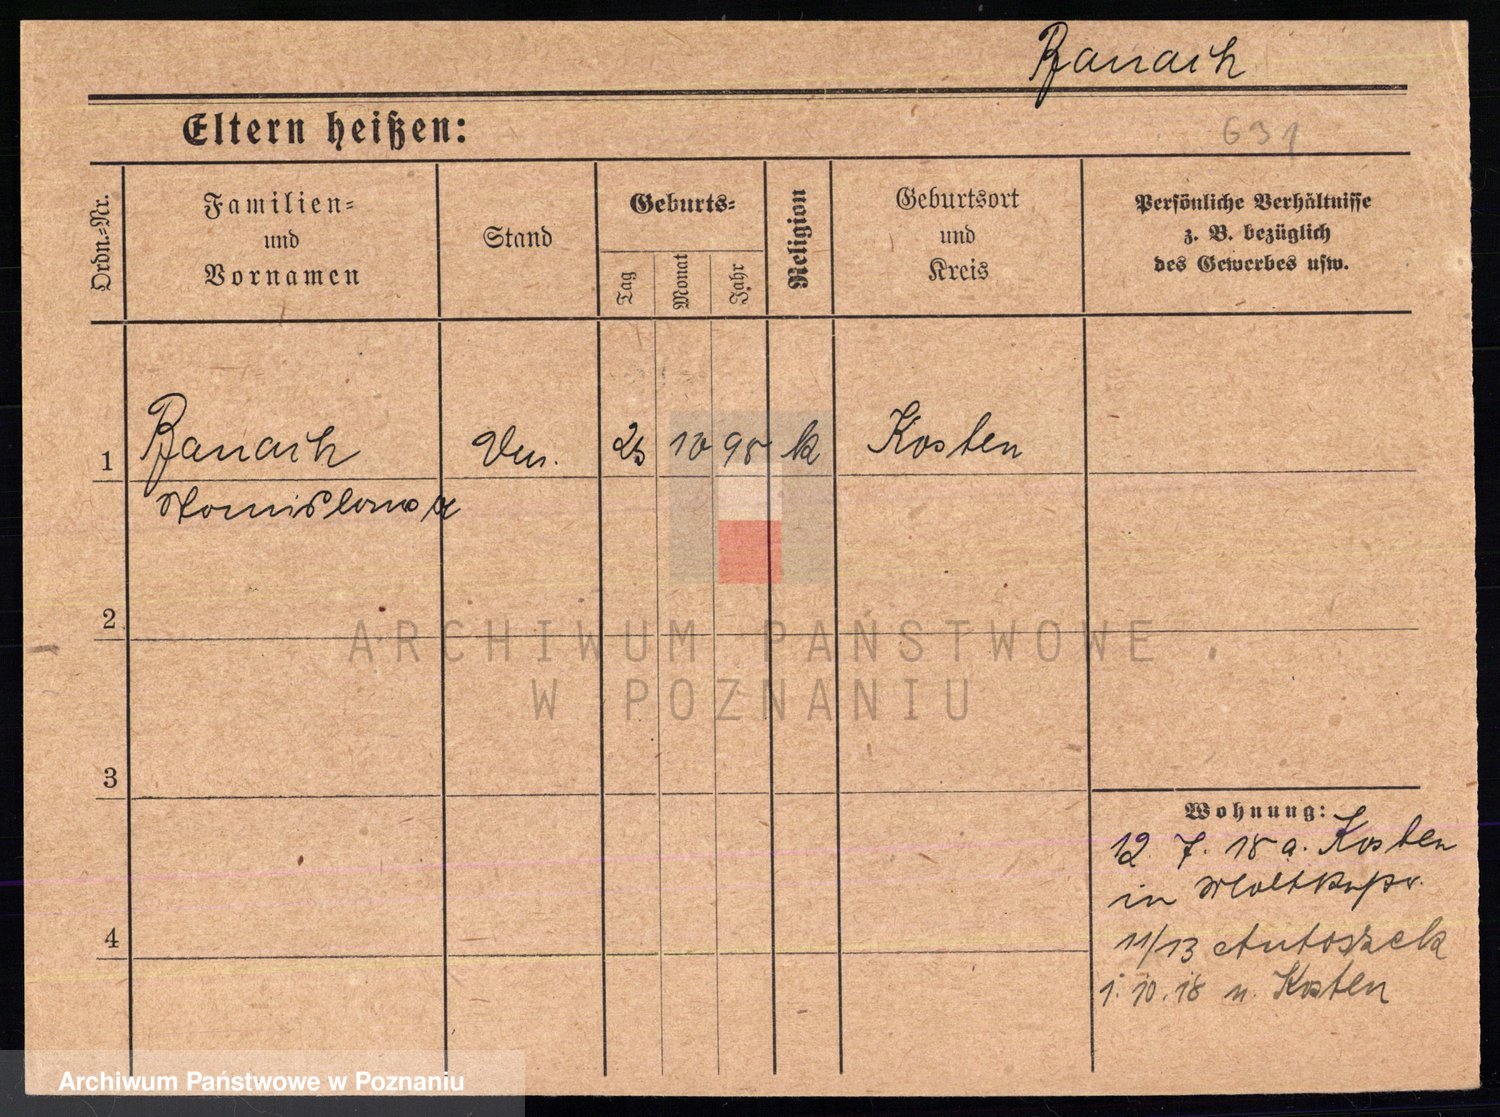 Banach
Eltern heißen:
631
Ordn.-Nr.
Familien-
und
Vornamen
Stand
Geburts-
Tag
Monat
Jahr
Religion
Geburtsort
und
Kreis
Persönliche Verhältnisse
z. B. bezüglich
des Gewerbes usw.
1
Banach
25 10 98
k
Kosten
Stanislawa
2
3
4
ARCHIWUM PAŃSTWOWE
W POZNANIU
Wohnung:
12. 7. 18 a. Kosten
in
11/13 Antoszek
1. 10. 18 n. Kosten
Archiwum Państwowe w Poznaniu